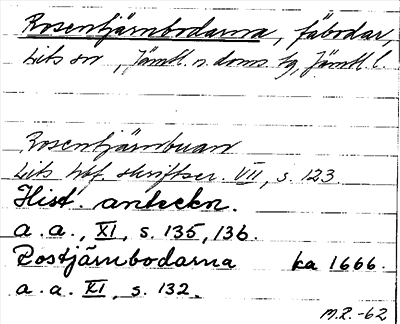 Rosentjärnbodarna, fäbodar,
Lits sn, Jämtl. n. doms. tg, Jämtl. l.
Rosentjärnbuan
Lits hbf. skriftser. VII, s. 123.
Hist. anteckn.
a.a., XI, s. 135, 136.
Rostjärnbodarna ka 1666.
a.a. XI, s. 132.
M.R.-62